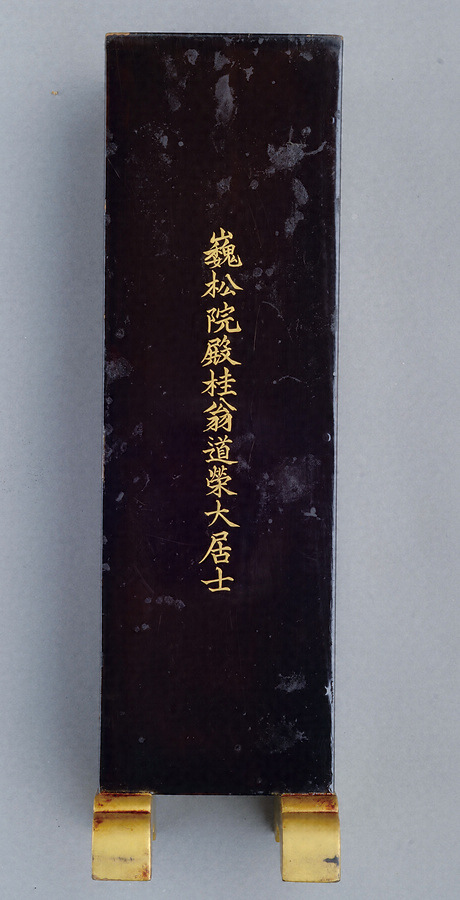 巍松院殿桂翁道榮大居士